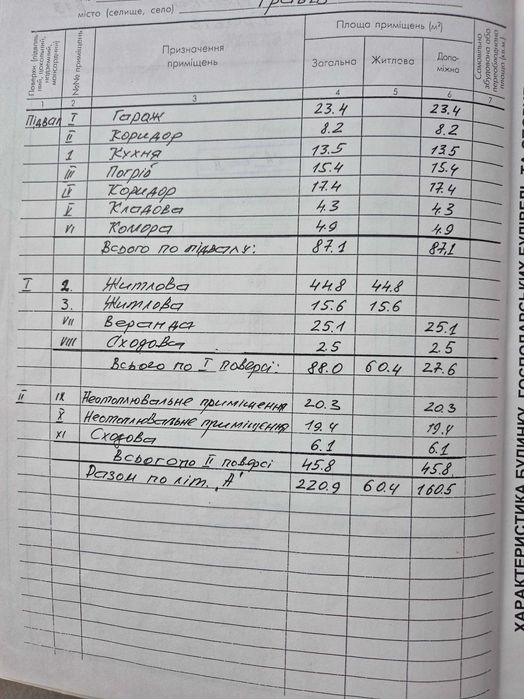 місто (селище, село)
Поверхи (підвальний, цокольний, надземний, мансардний)
№№ приміщень
Призначення приміщень
Площа приміщень (м²)
Загальна Житлова Допоміжна
Самовільно збудована або переобладнана площа (кв.м)
1 2 3 4 5 6 7
Підвал I Гараж 23.4 23.4
II Коридор 8.2 8.2
1 Кухня 13.5 13.5
III Погріб 15.4 15.4
IV Коридор 17.4 17.4
V Кладова 4.3 4.3
VI Комора 4.9 4.9
Всього по підвалу: 87.1 87.1
I 2. Житлова 44.8 44.8
3. Житлова 15.6 15.6
VII Веранда 25.1 25.1
VIII Сходова 2.5 2.5
Всього по I поверсі: 88.0 60.4 27.6
II IX Неотоплювальне приміщення 20.3 20.3
X Неотоплювальне приміщення 19.4 19.4
XI Сходова 6.1 6.1
Всього по II поверсі 45.8 45.8
Разом по літ. "А" 220.9 60.4 160.5